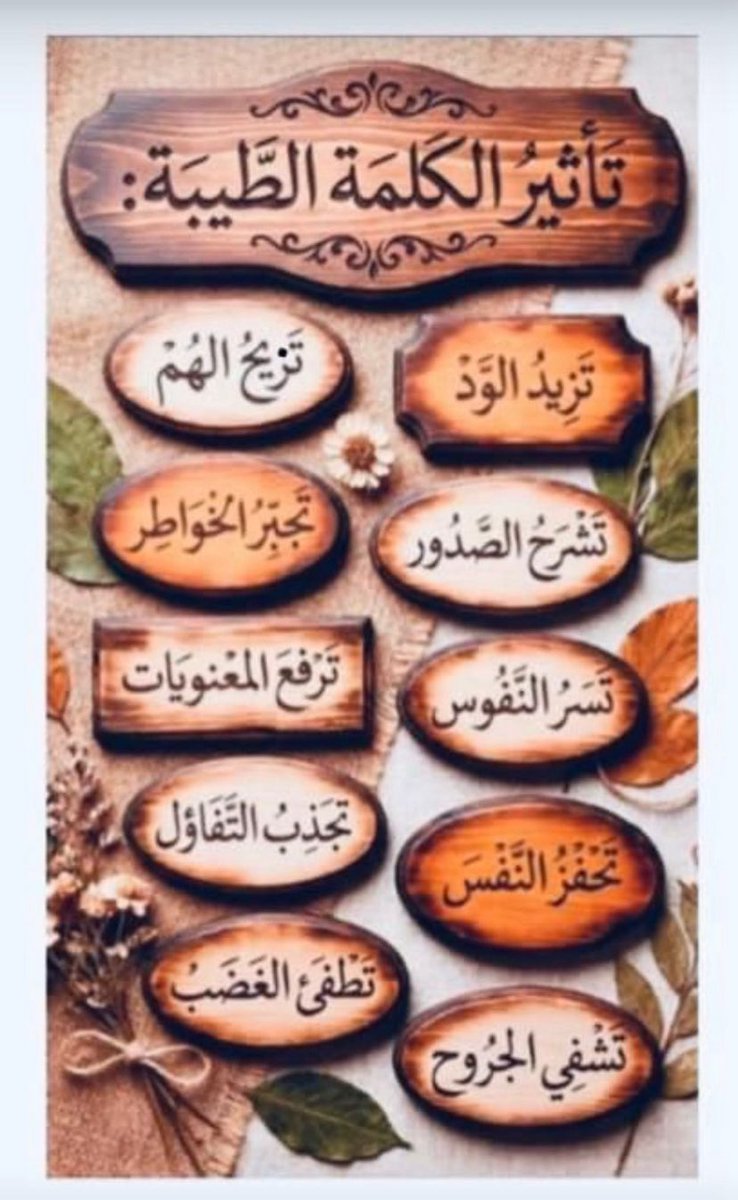 تَأثيرُ الكَلمَة الطَّيبَة:
تَزِيدُ الوَّدْ
تَزيحُ الهُمْ
تَشْرَحُ الصَّدُور
تَجبِّرُ الخْوَاطِر
تَسَرُ النَّفُوس
تَرْفعَ المَعْنويَات
تَحْفْزُ النَّفْسَ
تجَذِبُ التَّفَاؤل
تَشْفِي الجرُوح
تَطْفئَ الغَضَبُ